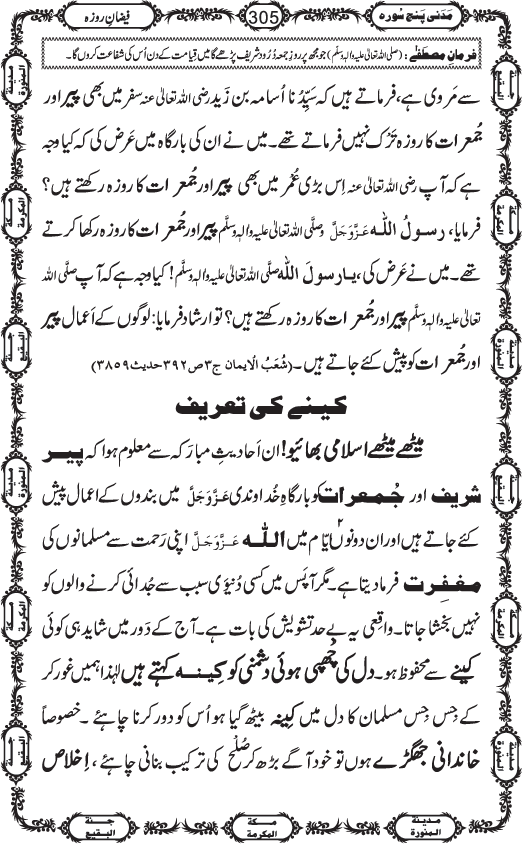 مَدَنی پنج سُورہ
305
فیضانِ روزہ
فرمانِ مصطفٰے: (صلی اللہ تعالیٰ علیہ والہٖ وسلّم) جو مجھ پر روزِ جمعہ دُرُود شریف پڑھے گا میں قیامت کے دن اُس کی شفاعت کروں گا۔
سے مَروی ہے، فرماتے ہیں کہ سیِّدُنا اُسامہ بن زَید رضی اللہ تعالیٰ عنہ سفر میں بھی پیر اور
جُمعرات کا روزہ تَرْک نہیں فرماتے تھے۔ میں نے ان کی بارگاہ میں عَرض کی کہ کیا وجہ
ہے کہ آپ رضی اللہ تعالیٰ عنہ اِس بڑی عُمْر میں بھی پیر اور جُمعرات کا روزہ رکھتے ہیں؟
فرمایا، رسولُ اللہ عَزَّوَجَلَّ وصلَّی اللہ تعالیٰ علیہ والہٖ وسلَّم پیر اور جُمعرات کا روزہ رکھا کرتے
تھے۔ میں نے عَرض کی، یارسولَ اللہ صلَّی اللہ تعالیٰ علیہ والہٖ وسلَّم! کیا وجہ ہے کہ آپ صلَّی اللہ
تعالیٰ علیہ والہٖ وسلَّم پیر اور جُمعرات کا روزہ رکھتے ہیں؟ تو ارشاد فرمایا: لوگوں کے اَعمال پیر
اور جُمعرات کو پیش کئے جاتے ہیں۔ (شُعَبُ الْایمان ج۳ ص۳۹۲ حدیث ۳۸۵۹)
کینے کی تعریف
میٹھے میٹھے اسلامی بھائیو! ان اَحادیثِ مبارَکہ سے معلوم ہوا کہ پیر
شریف اور جُمعرات کو بارگاہِ خُداوندی عَزَّوَجَلَّ میں بندوں کے اعمال پیش
کئے جاتے ہیں اور ان دونوں ایّام میں اللہ عَزَّوَجَلَّ اپنی رَحمت سے مسلمانوں کی
مغفِرت فرما دیتا ہے۔ مگر آپَس میں کسی دُنیَوی سبب سے جُدائی کرنے والوں کو
نہیں بخشا جاتا۔ واقِعی یہ بے حد تشویش کی بات ہے۔ آج کے دَور میں شاید ہی کوئی
کینے سے محفوظ ہو۔ دل کی چُھپی ہوئی دشمنی کو کِینہ کہتے ہیں لہٰذا ہمیں غور کر
کے جِس جِس مسلمان کا دل میں کِینہ بیٹھ گیا ہو اُس کو دور کرنا چاہئے۔ خصوصاً
خاندانی جھگڑے ہوں تو خود آگے بڑھ کر صُلْح کی ترکیب بنانی چاہئے، اِخلاص
مدینۃ المنورۃ
مکۃ المکرمۃ
جنۃ البقیع